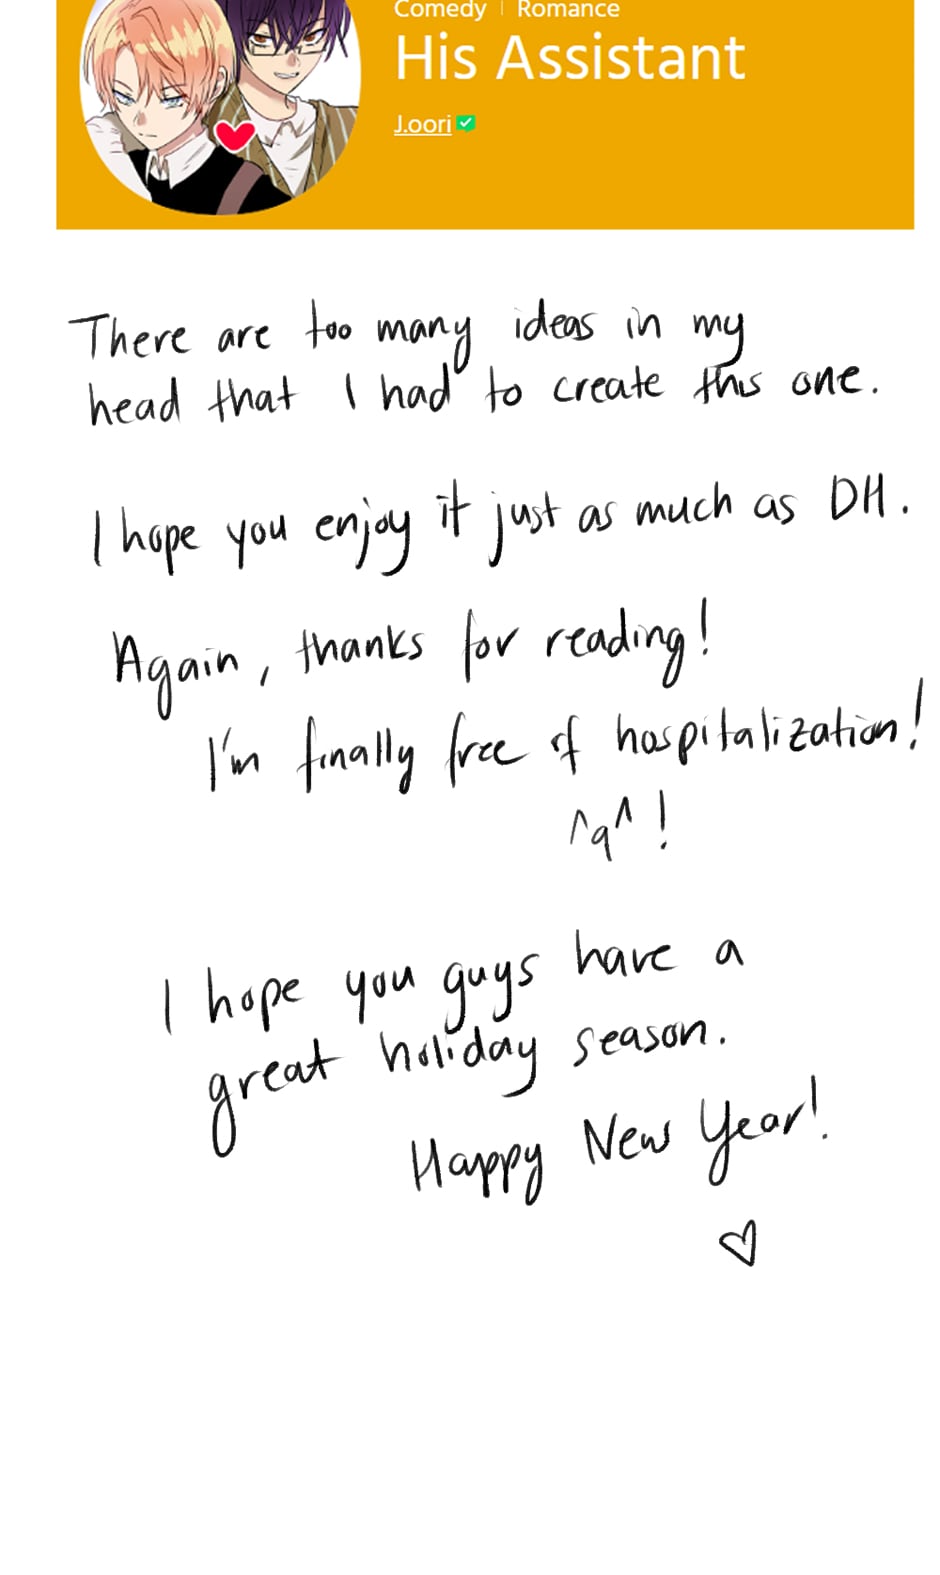 Comedy | Romance
His Assistant
J.oori
There are too many ideas in my
head that I had to create this one.
I hope you enjoy it just as much as DH.
Again, thanks for reading!
I'm finally free of hospitalization!
^q^!
I hope you guys have a
great holiday season.
Happy New Year!
♡